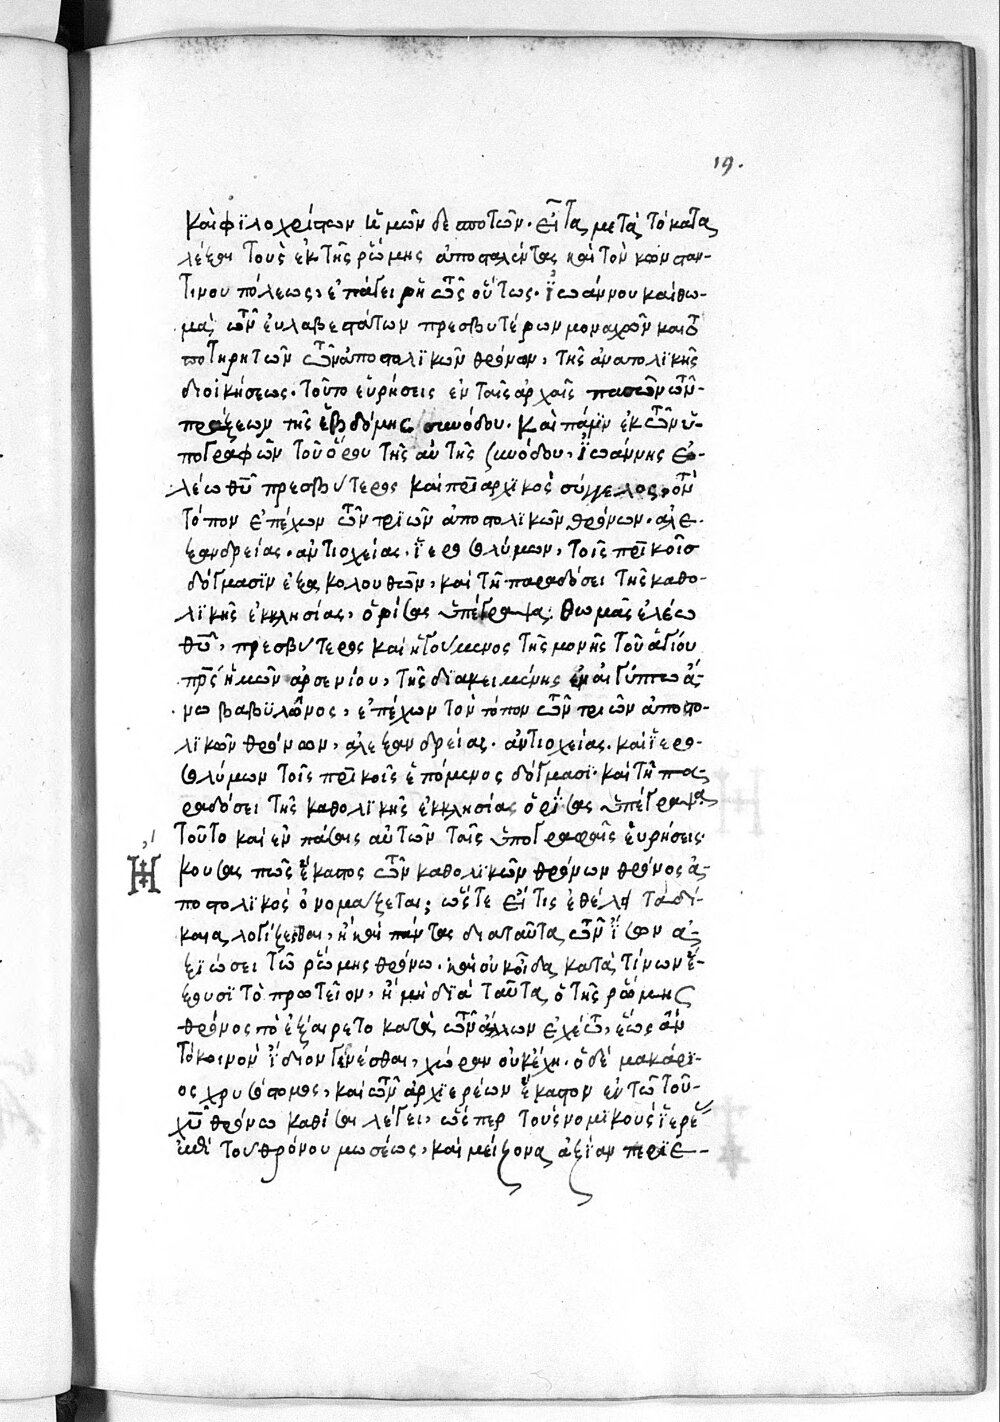 19.
καὶ φϊλοχρίστων ἡμῶν δεσποτῶν· εἶτα, μετὰ τὸ κατα
λέξαι τοὺς ἐκ τῆς ῥώμης ἀποσταλέντας καὶ τὸν κωνσταν-
τίνου πόλεως, ἐπάγει ῥητῶς οὕτως. Ἰωάννου καὶ θω-
μᾶ τῶν ἐυλαβεστάτων πρεσβυτέρων μοναχῶν καὶ το
ποτηρητῶν τῶν ἀποστολϊκῶν θρόνων, τῆς ἀνατολϊκῆς
διοικήσεως. τοῦτο εὑρήσεις ἐν ταῖς ἀρχαῖς πασῶν τῶν
πράξεων τῆς ἑβδόμης συνόδου. Καὶ πάλϊν ἐκ τῶν ὑ-
πογραφῶν τοῦ ὅρου τῆς αὐτῆς συνόδου, Ἰωάννης ἐ-
λέω θῦ πρεσβύτερος καὶ πρῑαρχικὸς σύγγελος, τὸν
τόπον ἐπέχων τῶν τριῶν ἀποστολϊκῶν θρόνων. ἀλε-
ξανδρείας. ἀντιοχείας. ἱεροσολύμων, τοῖς πρῑκοῖσ
δόγμασϊν ἐξακολουθῶν, καὶ τῆ παραδόσει τῆς καθο-
λϊκῆς ἐκκλησίας, ὁρίσας ὑπέγραψα. Θωμᾶς ἐλέω
θῦ, πρεσβύτερος καὶ ἡγούμενος τῆς μονῆς τοῦ ἁγίου
πρ̄ς ἡμῶν ἀρσενίου, τῆς διακειμένης ἐν αἰγύπτω ἄ-
νω βαβϋλῶνος, ἐπέχων τὸν τόπον τῶν τριῶν ἀποστο-
λϊκῶν θρόνων, ἀλεξανδρείας. ἀντιοχείας. καὶ ἱερο-
σολύμων τοῖς πρῑκοῖς ἑπόμενος δόγμασϊ. καὶ τῆ πα-
ραδόσει τῆς καθολϊκῆς ἐκκλησίας ὁρίσας ὑπέγραψα
τοῦτο καὶ ἐν πάσαις αὐτῶν ταῖς ὑπογραφαῖς ἑυρήσεις·
κουσας πῶς ἕκαστος τῶν καθολϊκῶν θρόνων θρόνος ἀ-
ποστολϊκὸς ὀνομάζεται; ὥστε εἴ τις ἐθέλει τὰ δί-
καια λογίζεσθαι, ἢ καὶ πάντας διὰ ταῦτα τῶν ἴσων ἀ-
ξϊώσει τῶ ῥώμης θρόνω. καὶ οὐκ οἶδα κατὰ τίνων ἕ-
ξουσϊ τὸ πρωτεῖον, ἢ μὴ δϊὰ ταῦτα, ὁ τῆς ῥώμης
θρόνος τὸ ἐξαίρετο κατὰ τῶν ἄλλων ἐχέτω, ἕως ἂν
τὸ κοινὸν ἴδιον γενέσθαι, χώραν οὐκ ἔχη. ὁ δὲ μακάρϊ-
ος χρυσόστομος, καὶ τῶν ἀρχϊερέων ἕκαστον ἐν τῶ τοῦ
χῦ θρόνω καθίσαι λέγει, ὥσπερ τοὺς νομϊκοὺς ἱερε
ἐπὶ τοῦ θρόνου μωσέως, καὶ μείζονα ἀξίαν περϊε-